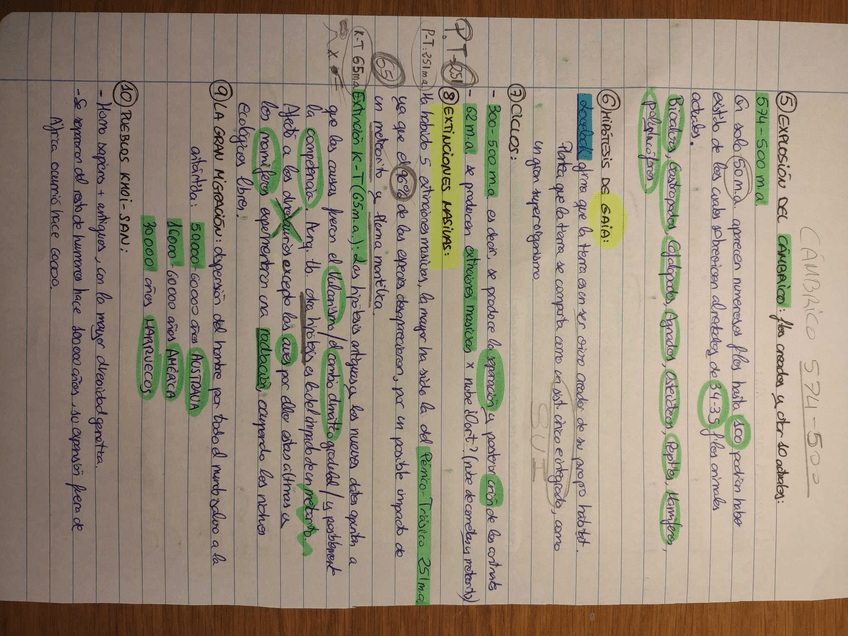 CÁMBRICO 574-500
⑤ EXPLOSIÓN DEL CÁMBRICO: filos creados y otros 10 actuales:
574-500 ma
En solo 50 ma aparecen numerosos filos hasta 100 podrían haber
existido de los cuales sobreviven alrededor de 34-35 filos animales
actuales.
Bivalvos, Gastrópodos, Cefalópodos, Agnados, Osteícteos, Reptiles, Mamíferos,
poliplacóforos
⑥ HIPÓTESIS DE GAIA:
Lovelock afirma que la tierra es un ser vivo creador de su propio hábitat.
Plantea que la tierra se comporta como un sist. único e integrado, como
un gran superorganismo.
⑦ CICLOS:
- 300-500 ma es decir, se produce la separación y posterior unión de los continentes
- 62 ma se producen extinciones masivas x nube de Oort? (nube de cometas y meteoritos)
P.T. 251
⑧ EXTINCIONES MASIVAS:
P-T: 251 ma
Ha habido 5 extinciones masivas, la mayor ha sido la del Pérmico-Triásico 251 ma
ya que el 96% de las especies desaparecieron, por un posible impacto de
un meteorito y pluma mantélica.
65
K-T 65 ma
Extinción K-T (65 ma): Las hipótesis antiguas y los nuevos datos apuntan a
que las causas fueron el vulcanismo, el cambio climático gradual y posiblemente
la competencia. Aunq la otra hipótesis es la del impacto de un meteorito
Afectó a los dinosaurios excepto las aves por ello estas últimas y
los mamíferos experimentaron una radiación ocupando los nichos
ecológicos libres.
⑨ LA GRAN MIGRACIÓN: dispersión del hombre por todo el mundo salvo a la
antártida: 50000-60000 años AUSTRALIA
16000-60000 años AMÉRICA
30000 años MARRUECOS
⑩ PUEBLOS KHOI-SAN:
- Homo sapiens + antiguos, con la mayor diversidad genética.
- Se separaron del resto de humanos hace 100000 años y su expansión fuera de
África ocurrió hace 60000.